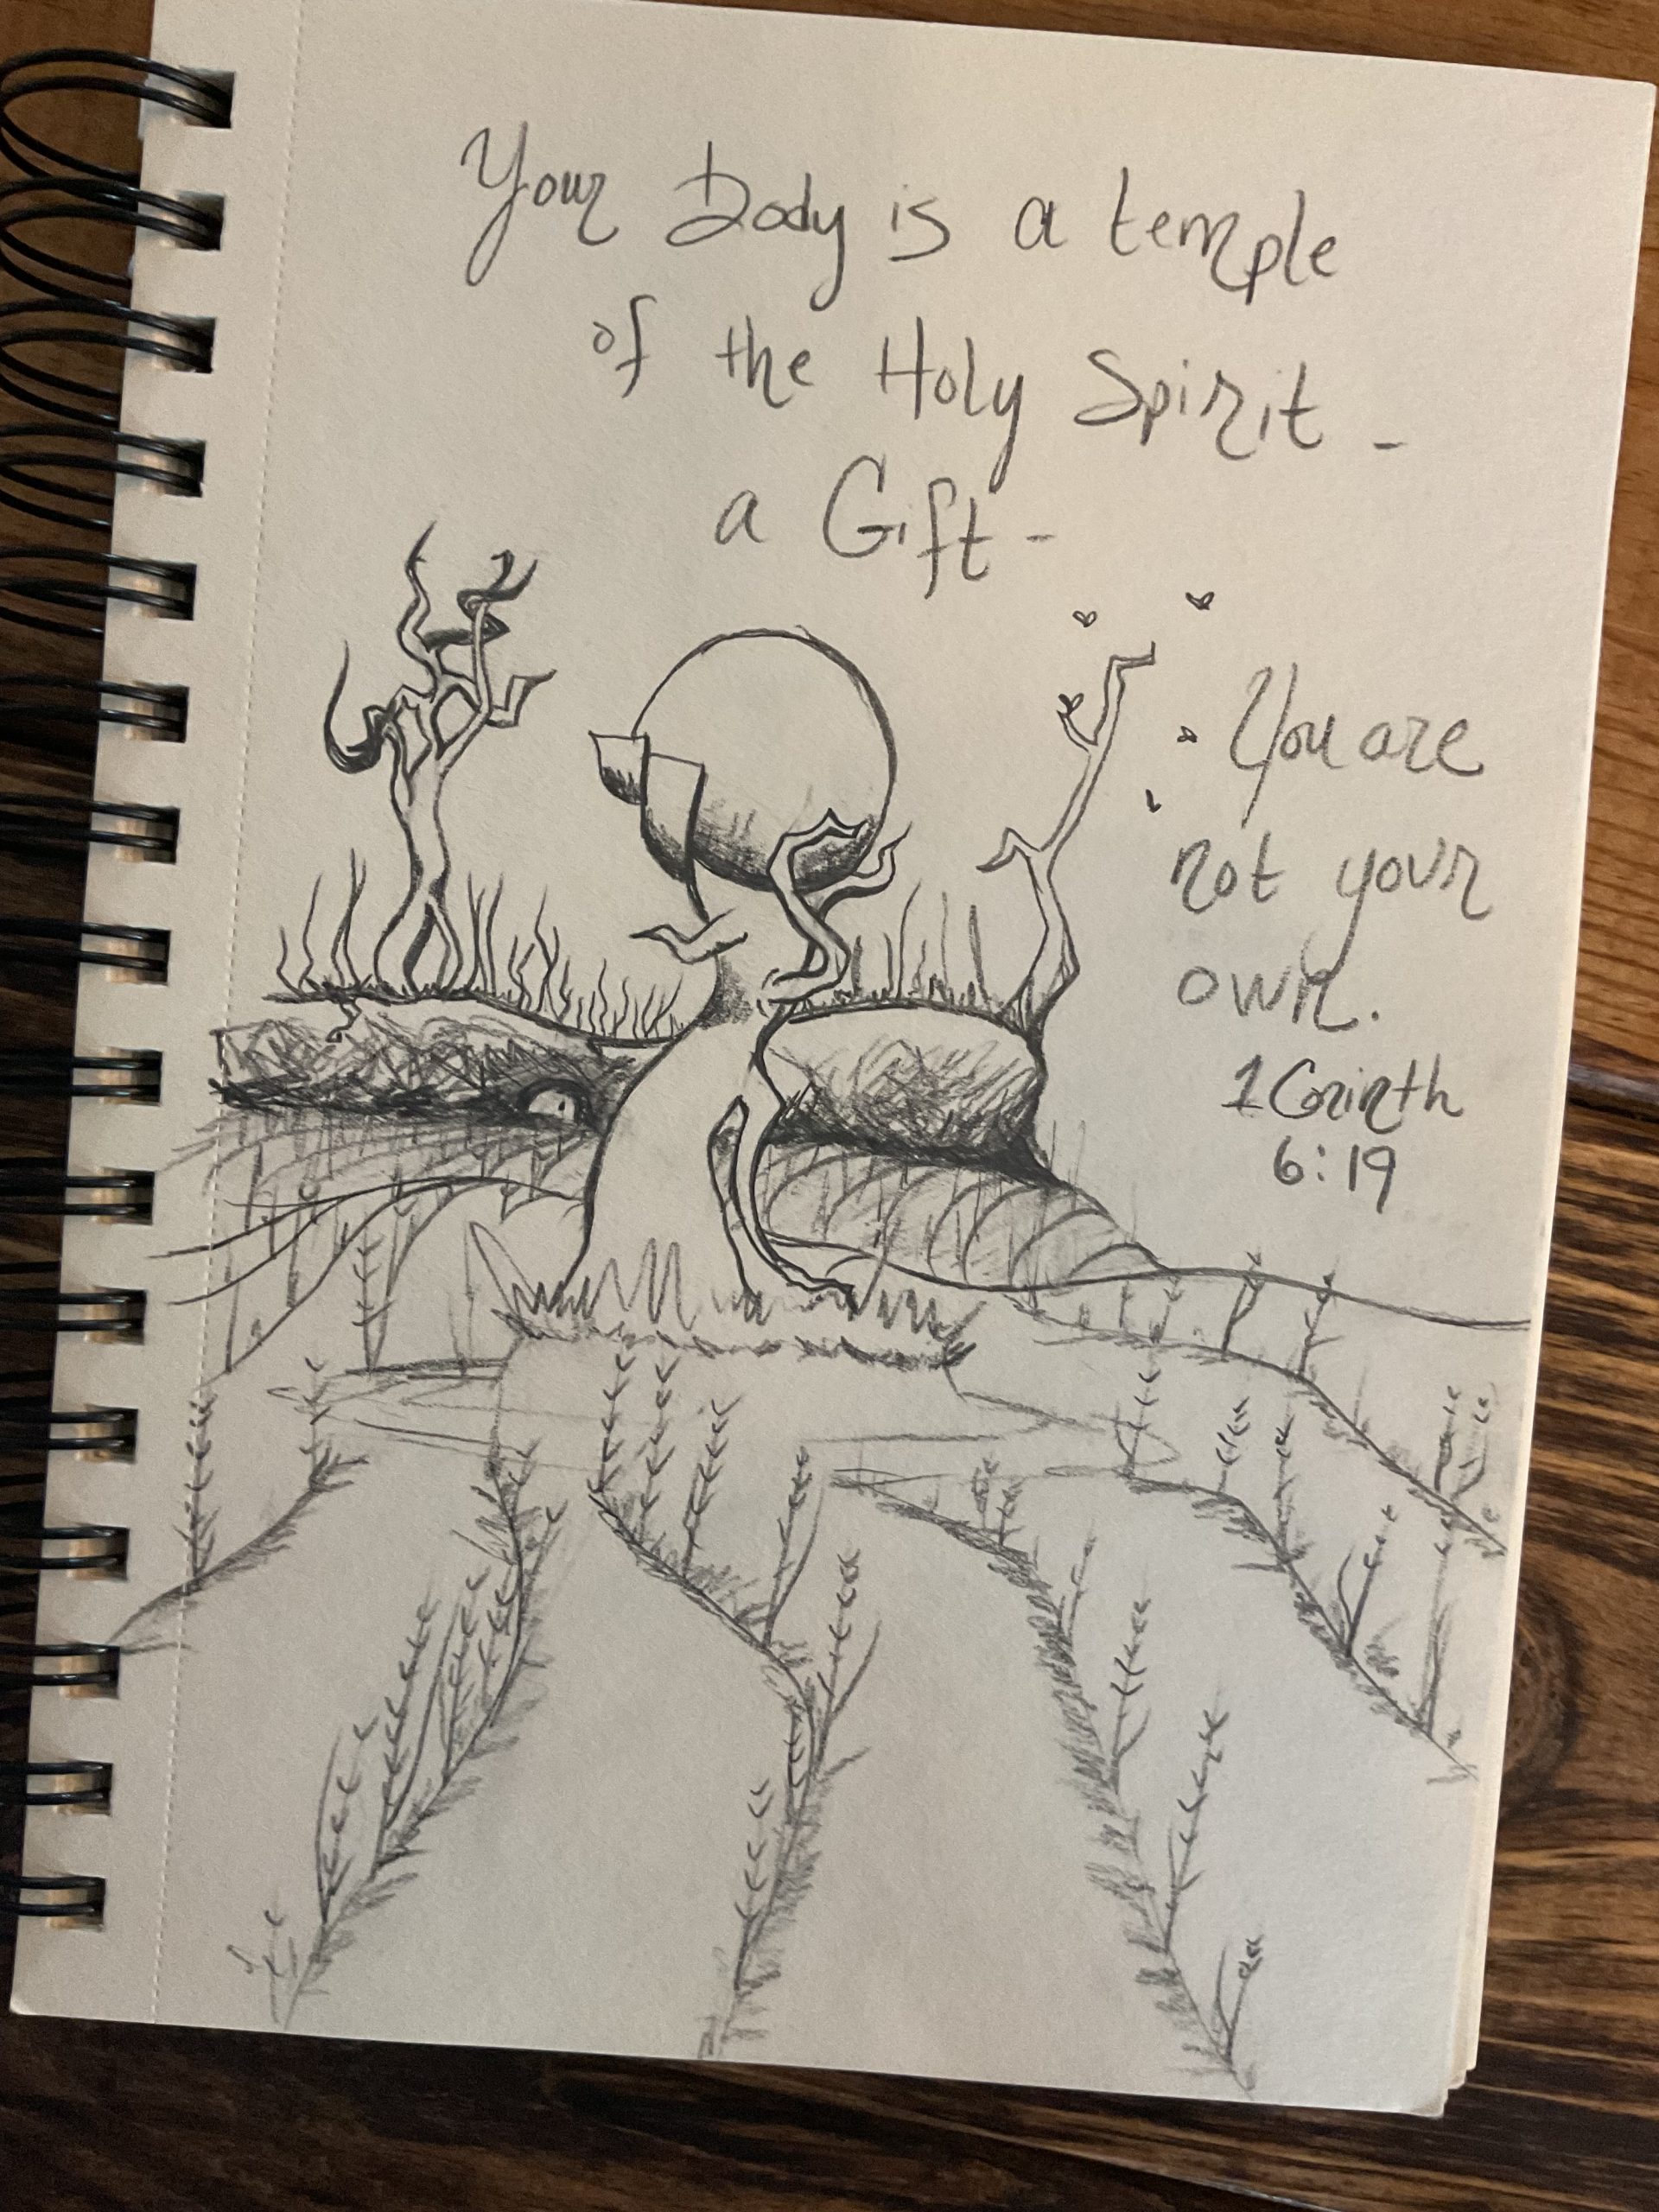 Your Body is a temple
of the Holy Spirit -
a Gift -
You are
not your
own.
1 Corinth
6:19